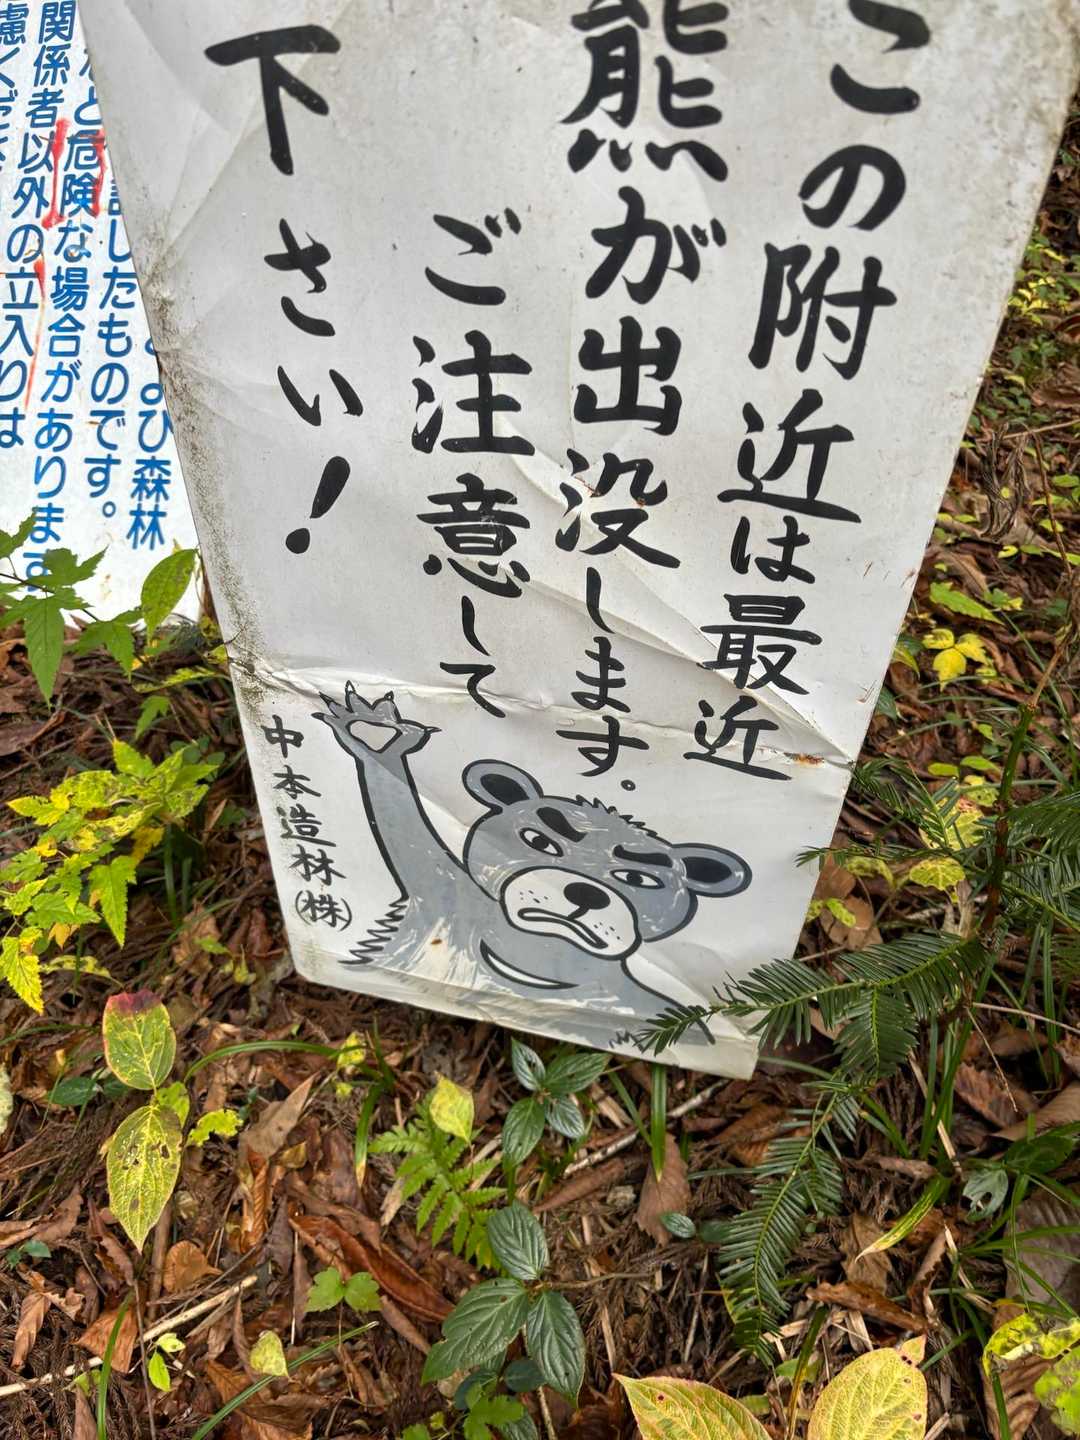 この附近は最近
熊が出没します。
ご注意して
下さい!
中本造林(株)
よび森林
したものです。
と危険な場合があります
関係者以外の立入りは
慮くだ